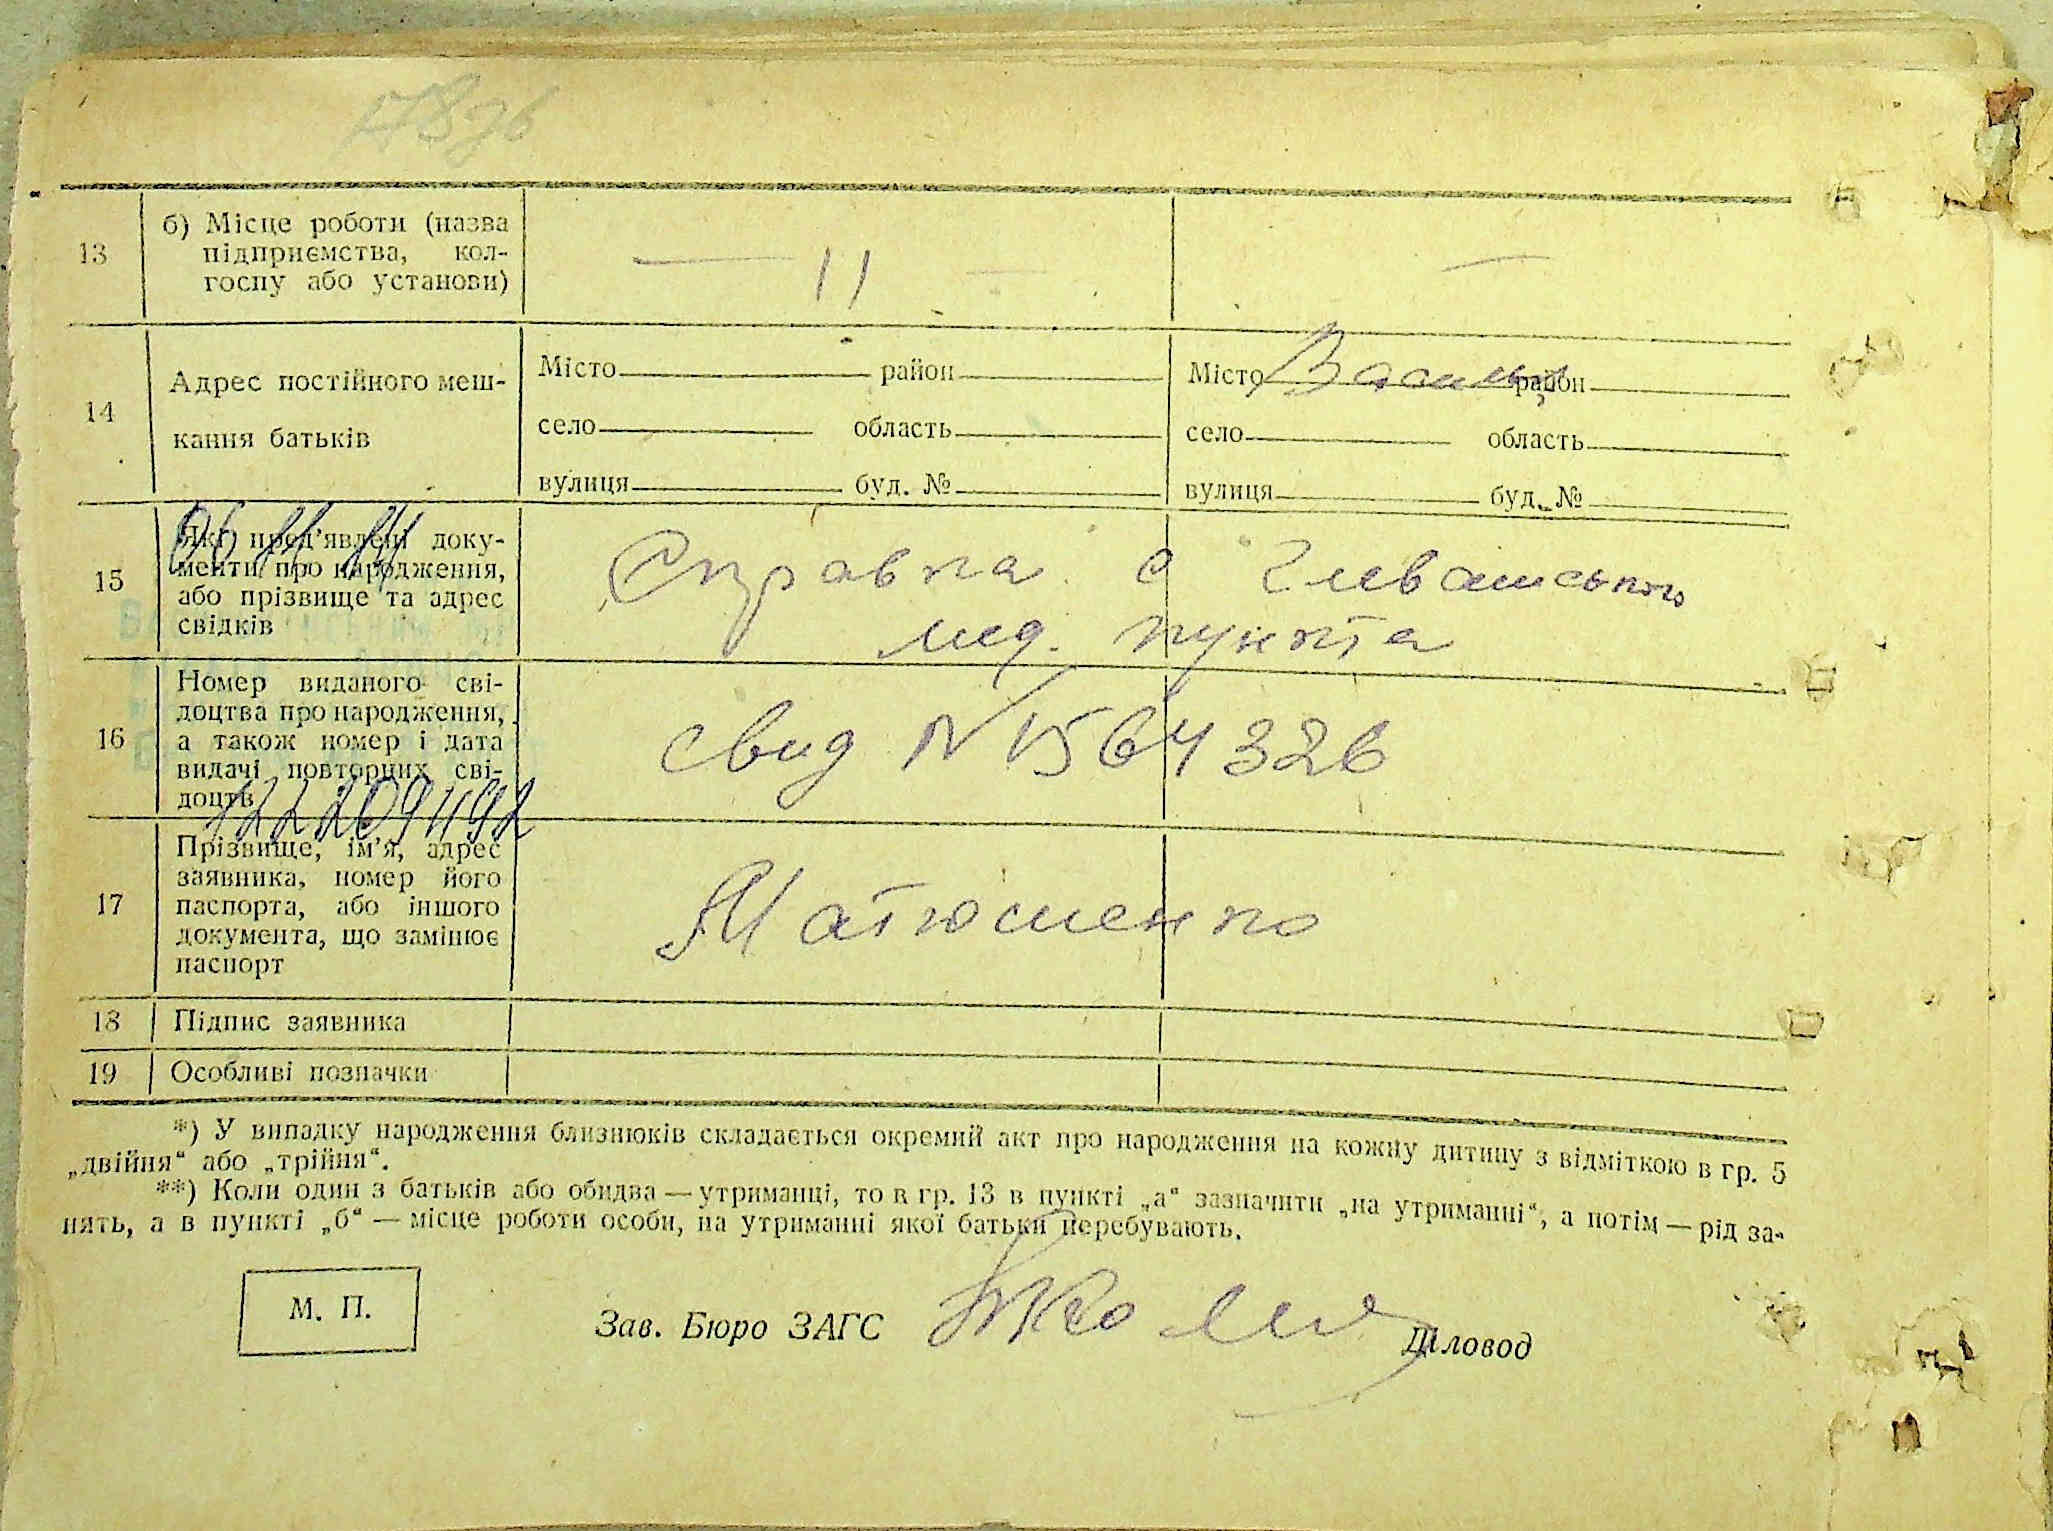 13 б) Місце роботи (назва
підприємства, кол-
госпу або установи) — 11 — —
14 Адрес постійного меш-
кання батьків
Місто район
село область
вулиця буд. №
Місто район
село область
вулиця буд. №
15 Які пред'явлені доку-
менти про народження,
або прізвище та адрес
свідків
Справка с
мед. пункта
16 Номер виданого сві-
доцтва про народження,
а також номер і дата
видачі повторних сві-
доцтв
свид N 1564326
17 Прізвище, ім'я, адрес
заявника, номер його
паспорта, або іншого
документа, що замінює
паспорт
Матюшенко
18 Підпис заявника
19 Особливі позначки
*) У випадку народження близнюків складається окремий акт про народження на кожну дитину з відміткою в гр. 5
„двійня“ або „трійня“.
**) Коли один з батьків або обидва — утриманці, то в гр. 13 в пункті „а“ зазначити „на утриманні“, а потім — рід за-
нять, а в пункті „б“ — місце роботи особи, на утриманні якої батьки перебувають.
М. П.
Зав. Бюро ЗАГС Діловод